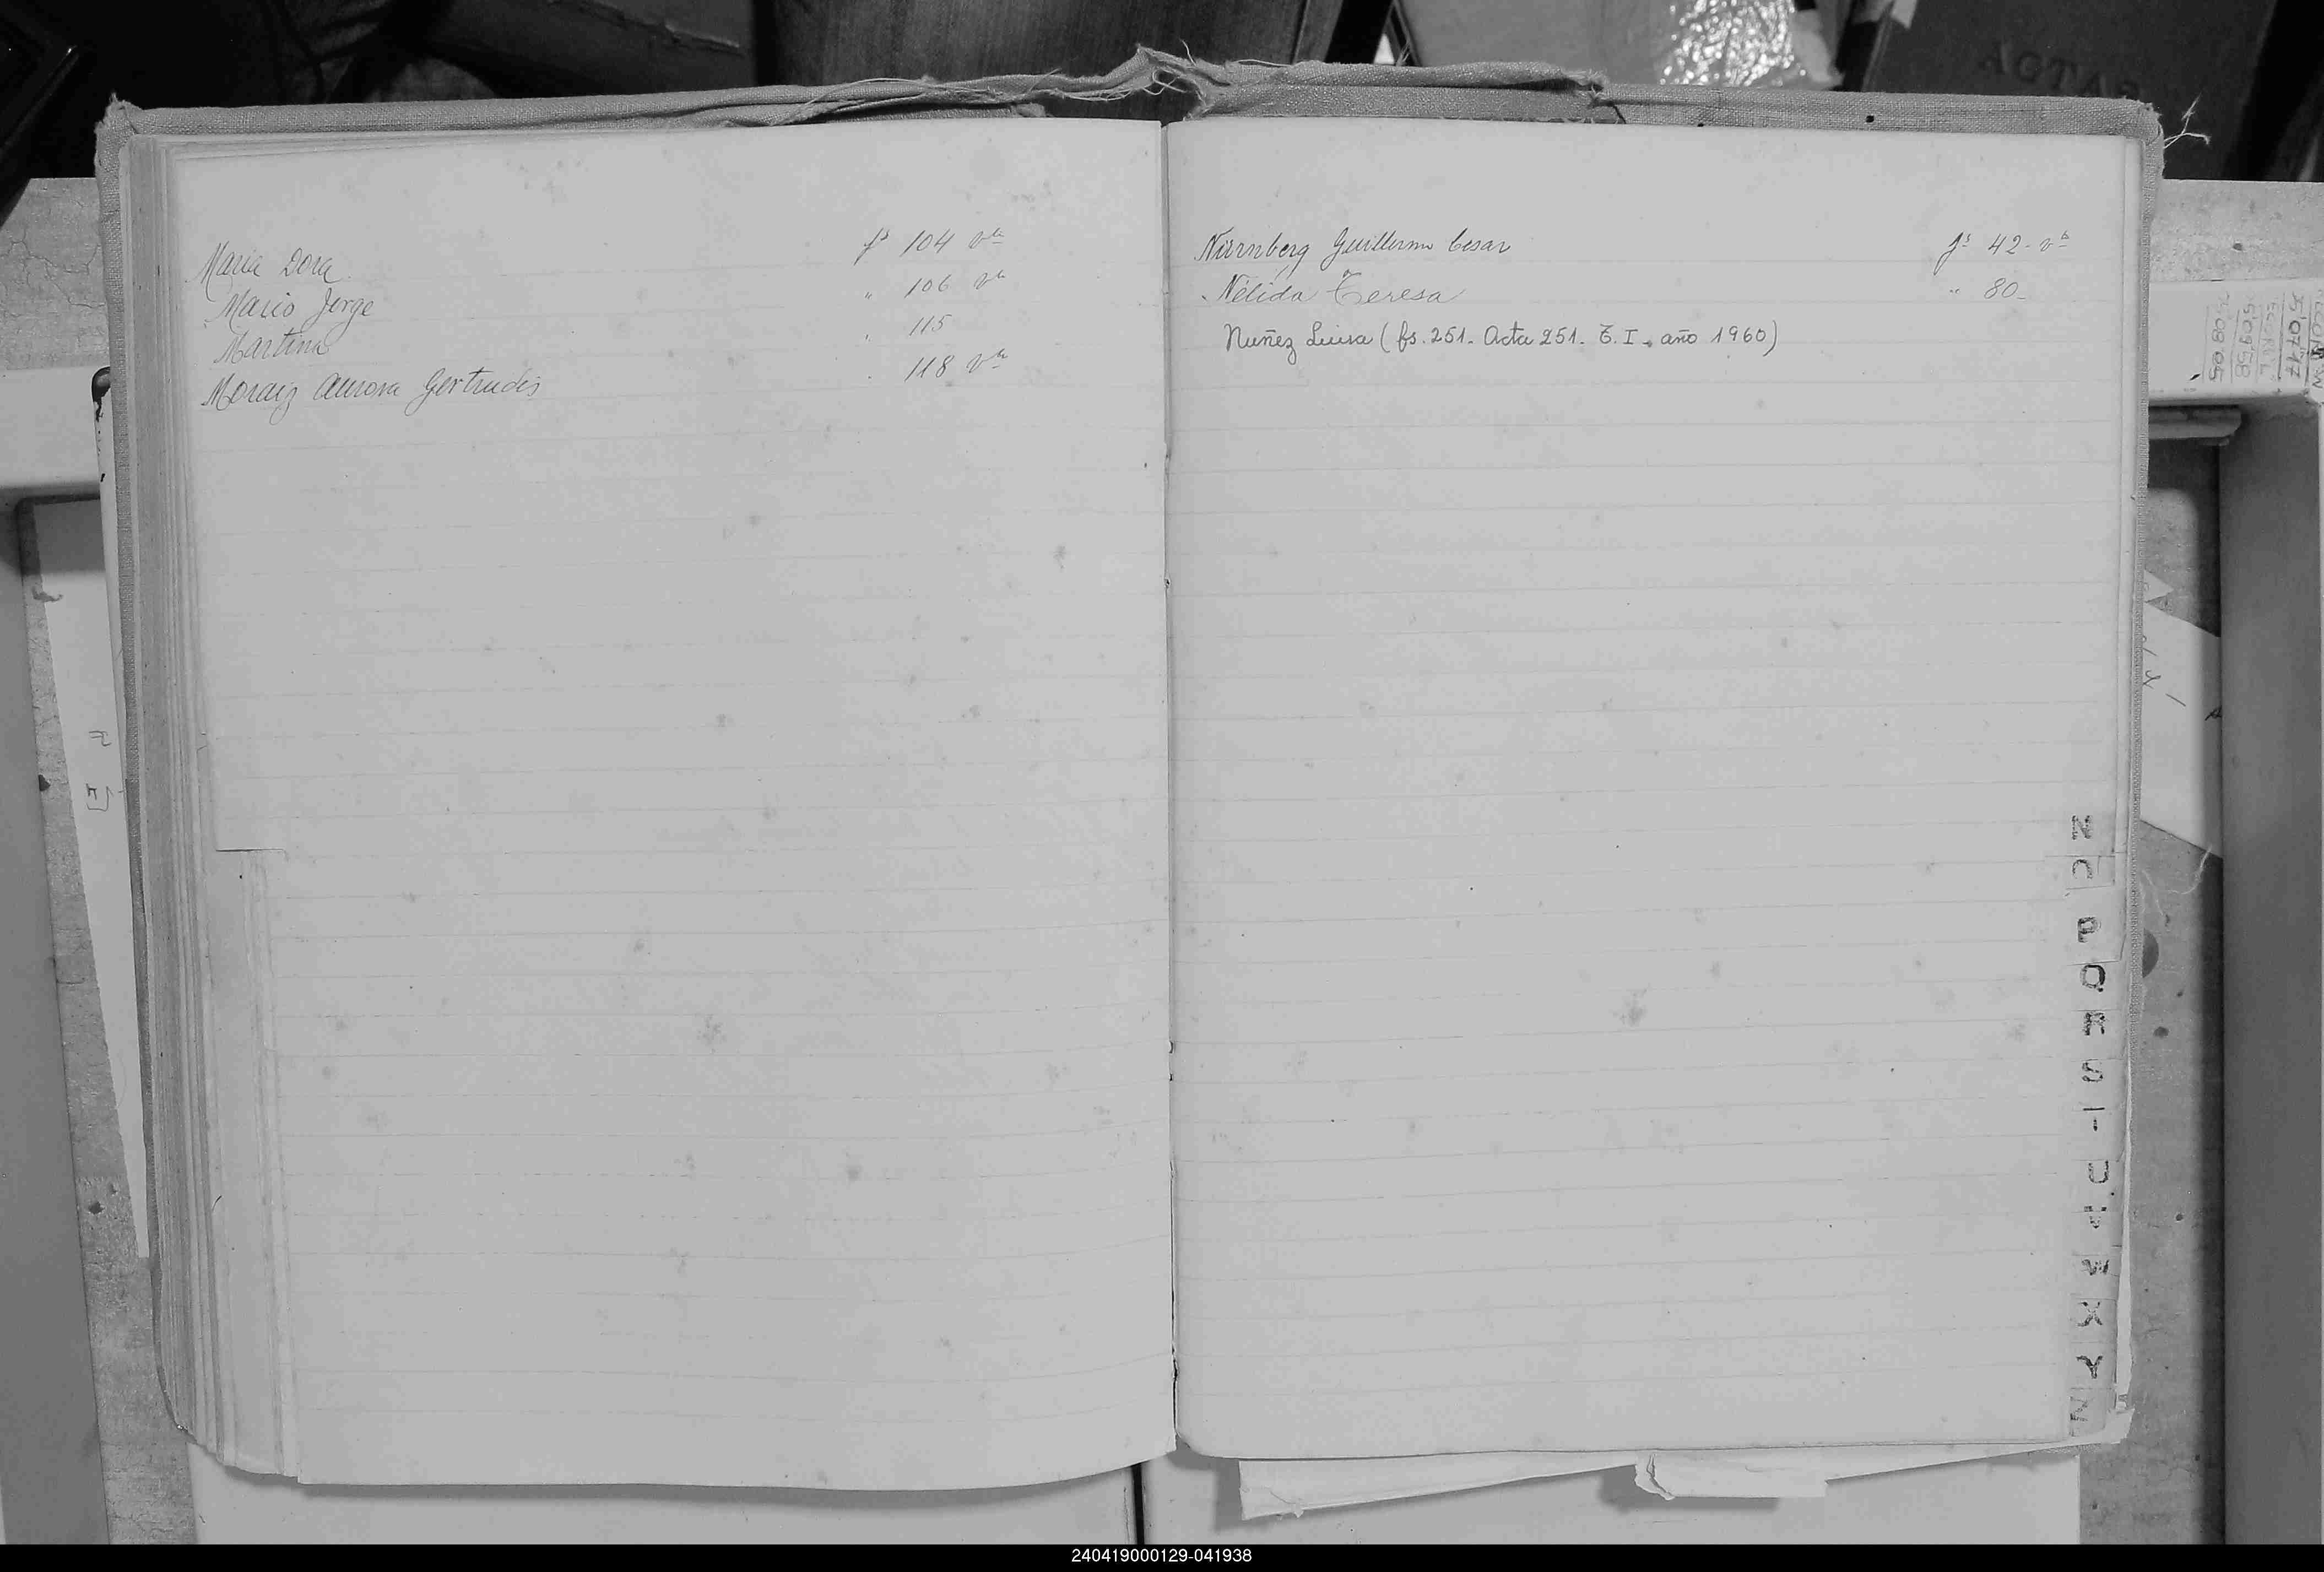 Maria Dora fs 104 vta
Mario Jorge " 106 vta
Martina " 115
Moraiz Aurora Gertrudis " 118 vta
Nürnberg Guillermo Cesar fs 42- vta
Nélida Teresa " 80-
Nuñez Luisa (fs. 251. Acta 251. T. I. año 1960)
N
O
P
Q
R
S
T
U
V
W
X
Y
Z
ACTAS
240419000129-041938